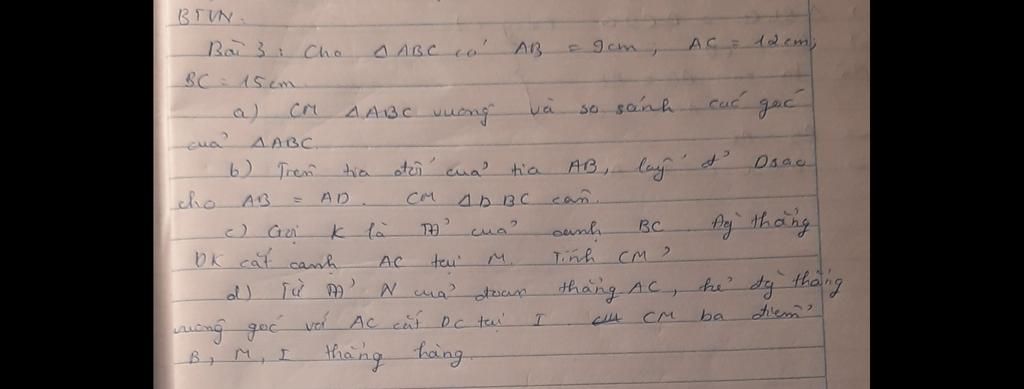 BTVN.
Bài 3: Cho ΔABC có AB = 9cm, AC = 12cm,
BC = 15cm
a) CM ΔABC vuông và so sánh các góc
của ΔABC.
b) Trên tia đối của tia AB, lấy đ' D sao
cho AB = AD. CM ΔDBC cân.
c) Gọi K là TĐ' của cạnh BC. Đg` thẳng
DK cắt cạnh AC tại M. Tính CM?
d) Từ TĐ' N của đoạn thẳng AC, kẻ đg` thẳng
vuông góc với AC cắt DC tại I CM ba điểm
B, M, I thẳng hàng.